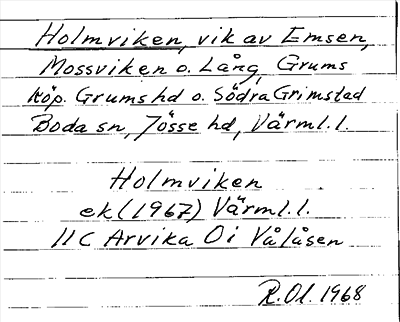 Holmviken, vik av Emsen,
Mossviken o. Lång, Grums
köp. Grums hd o. Södra Grimstad
Boda sn, Jösse hd, Värml. l.
Holmviken
ek (1967) Värml. l.
11C Arvika Öi Vålåsen
R.Ol. 1968